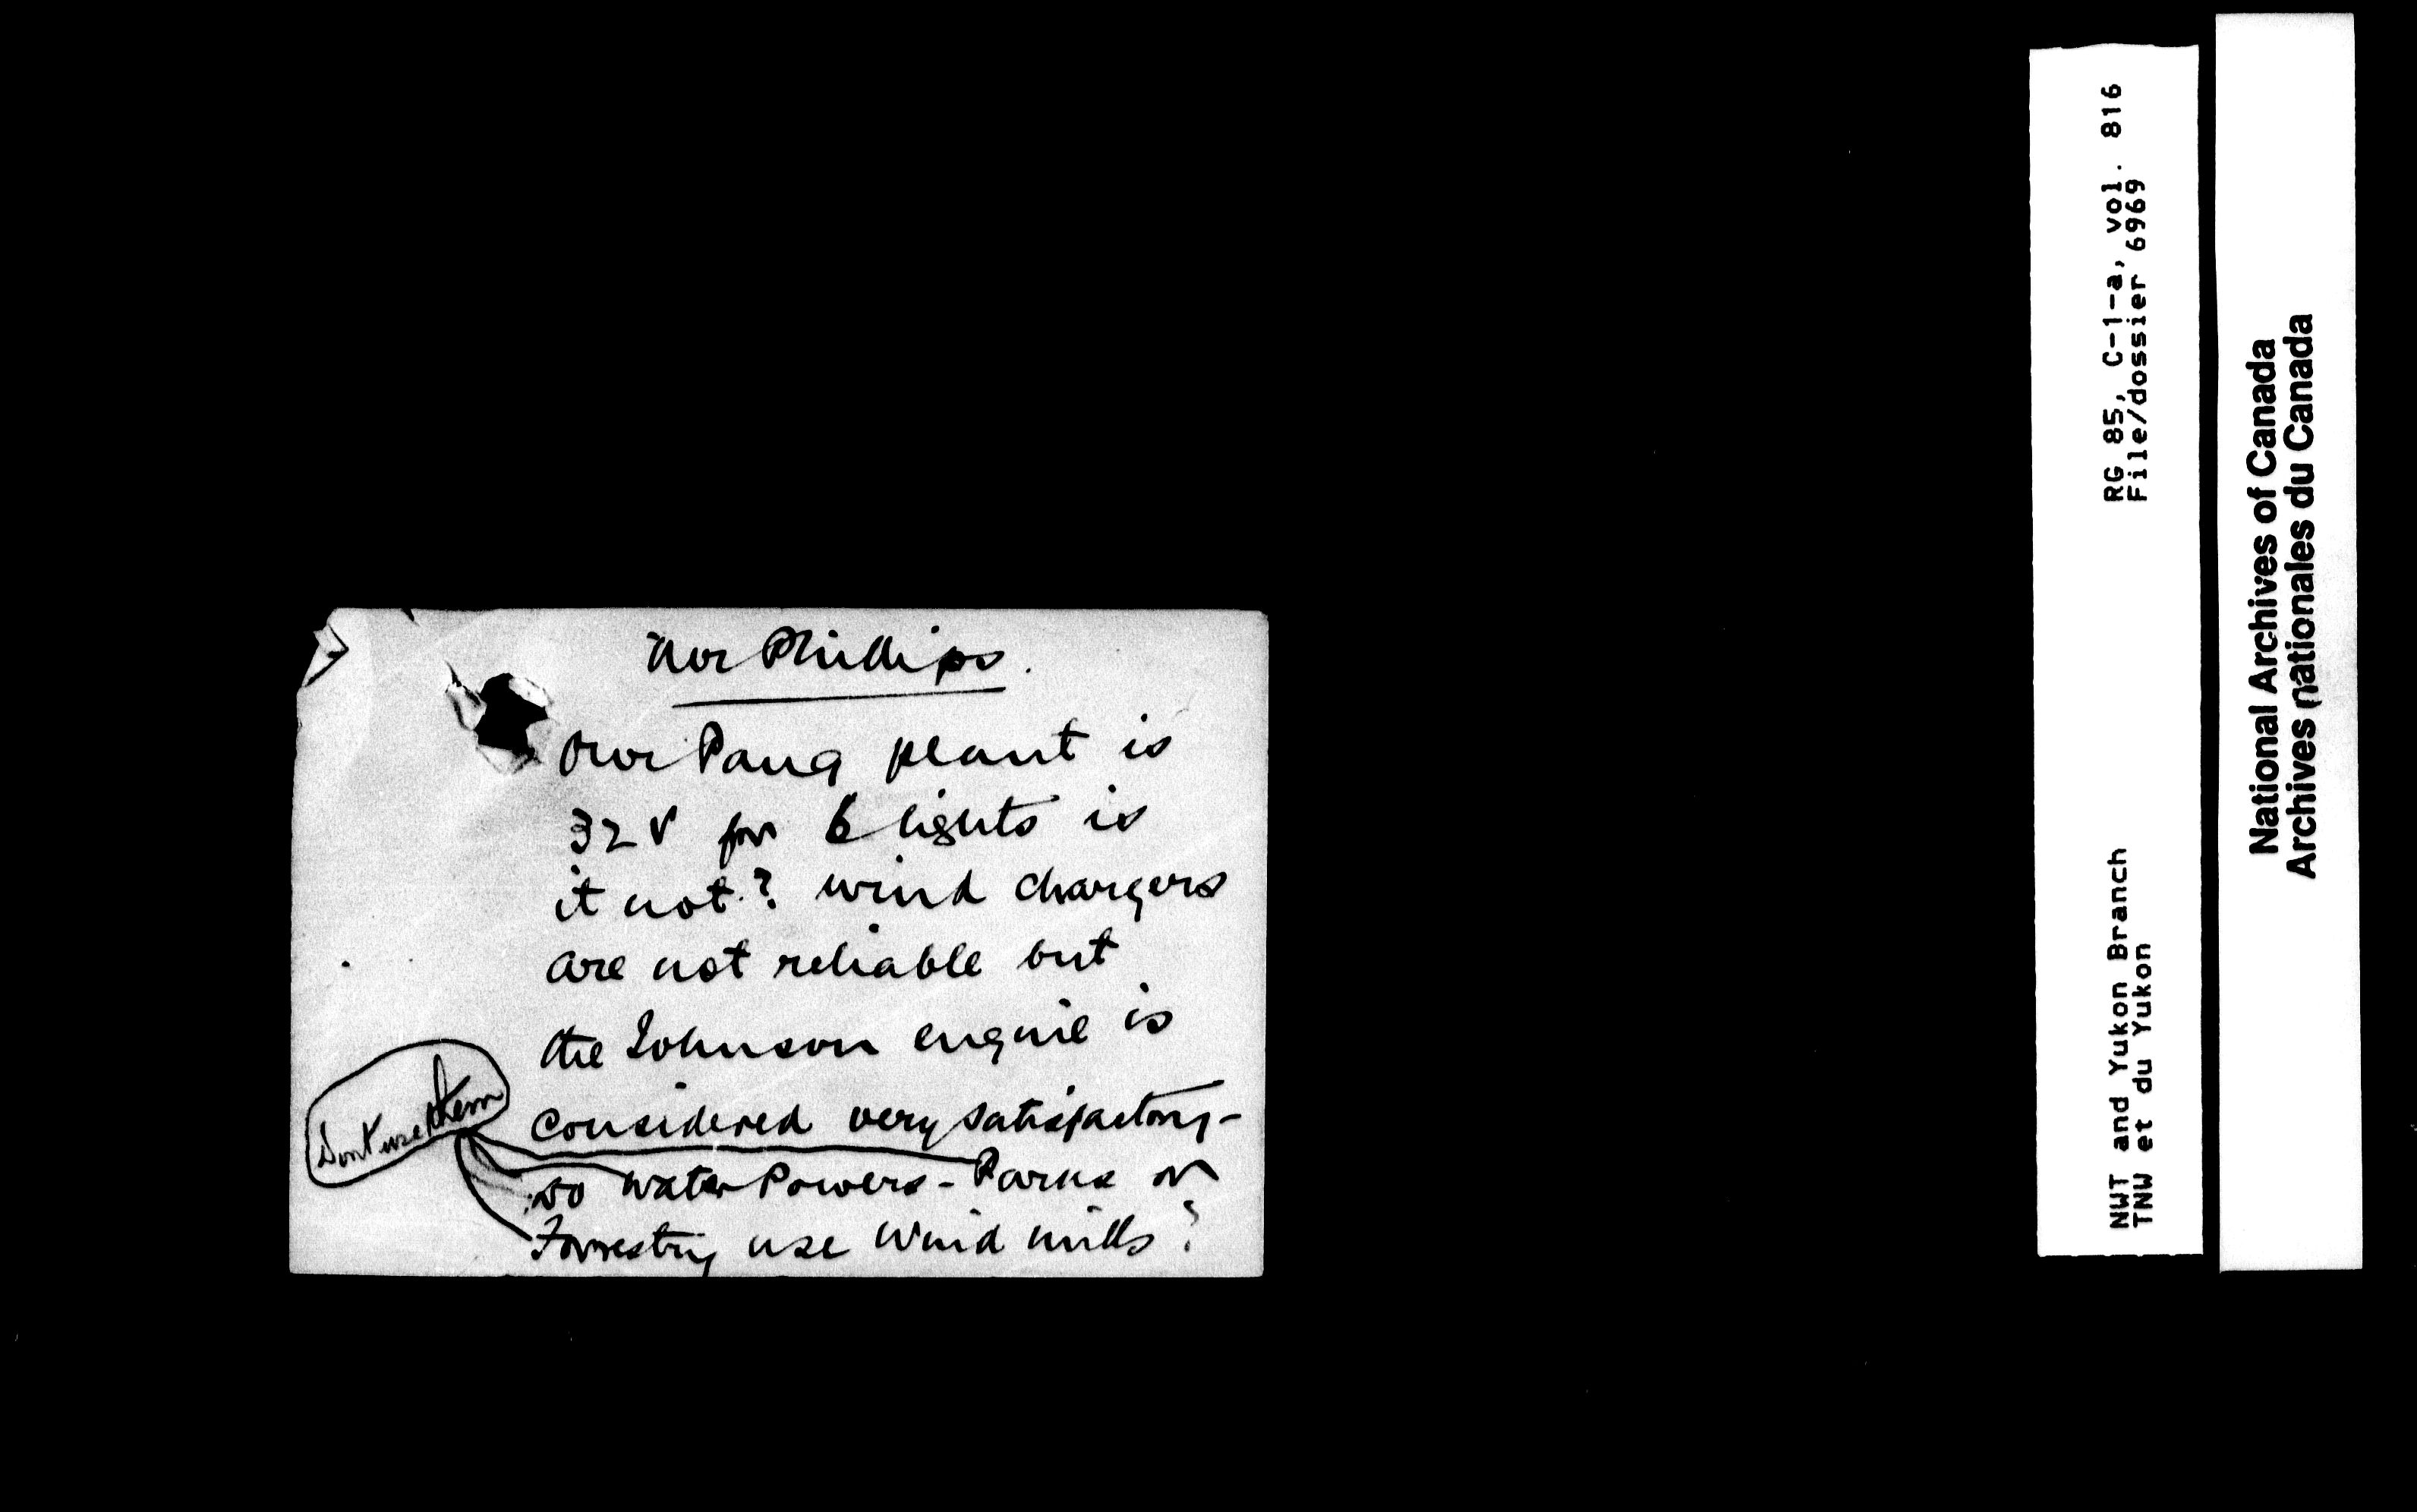 Mr Phillips.
Our Pang plant is
32 V for 6 lights is
it not? wind chargers
are not reliable but
the Johnson engine is
considered very satisfactory-
Do Water Powers - Parks or
Forrestry use wind mills?
Dont use them
RG 85, C-1-a, vol. 816
File/dossier 6969
NWT and Yukon Branch
TNW et du Yukon
National Archives of Canada
Archives nationales du Canada